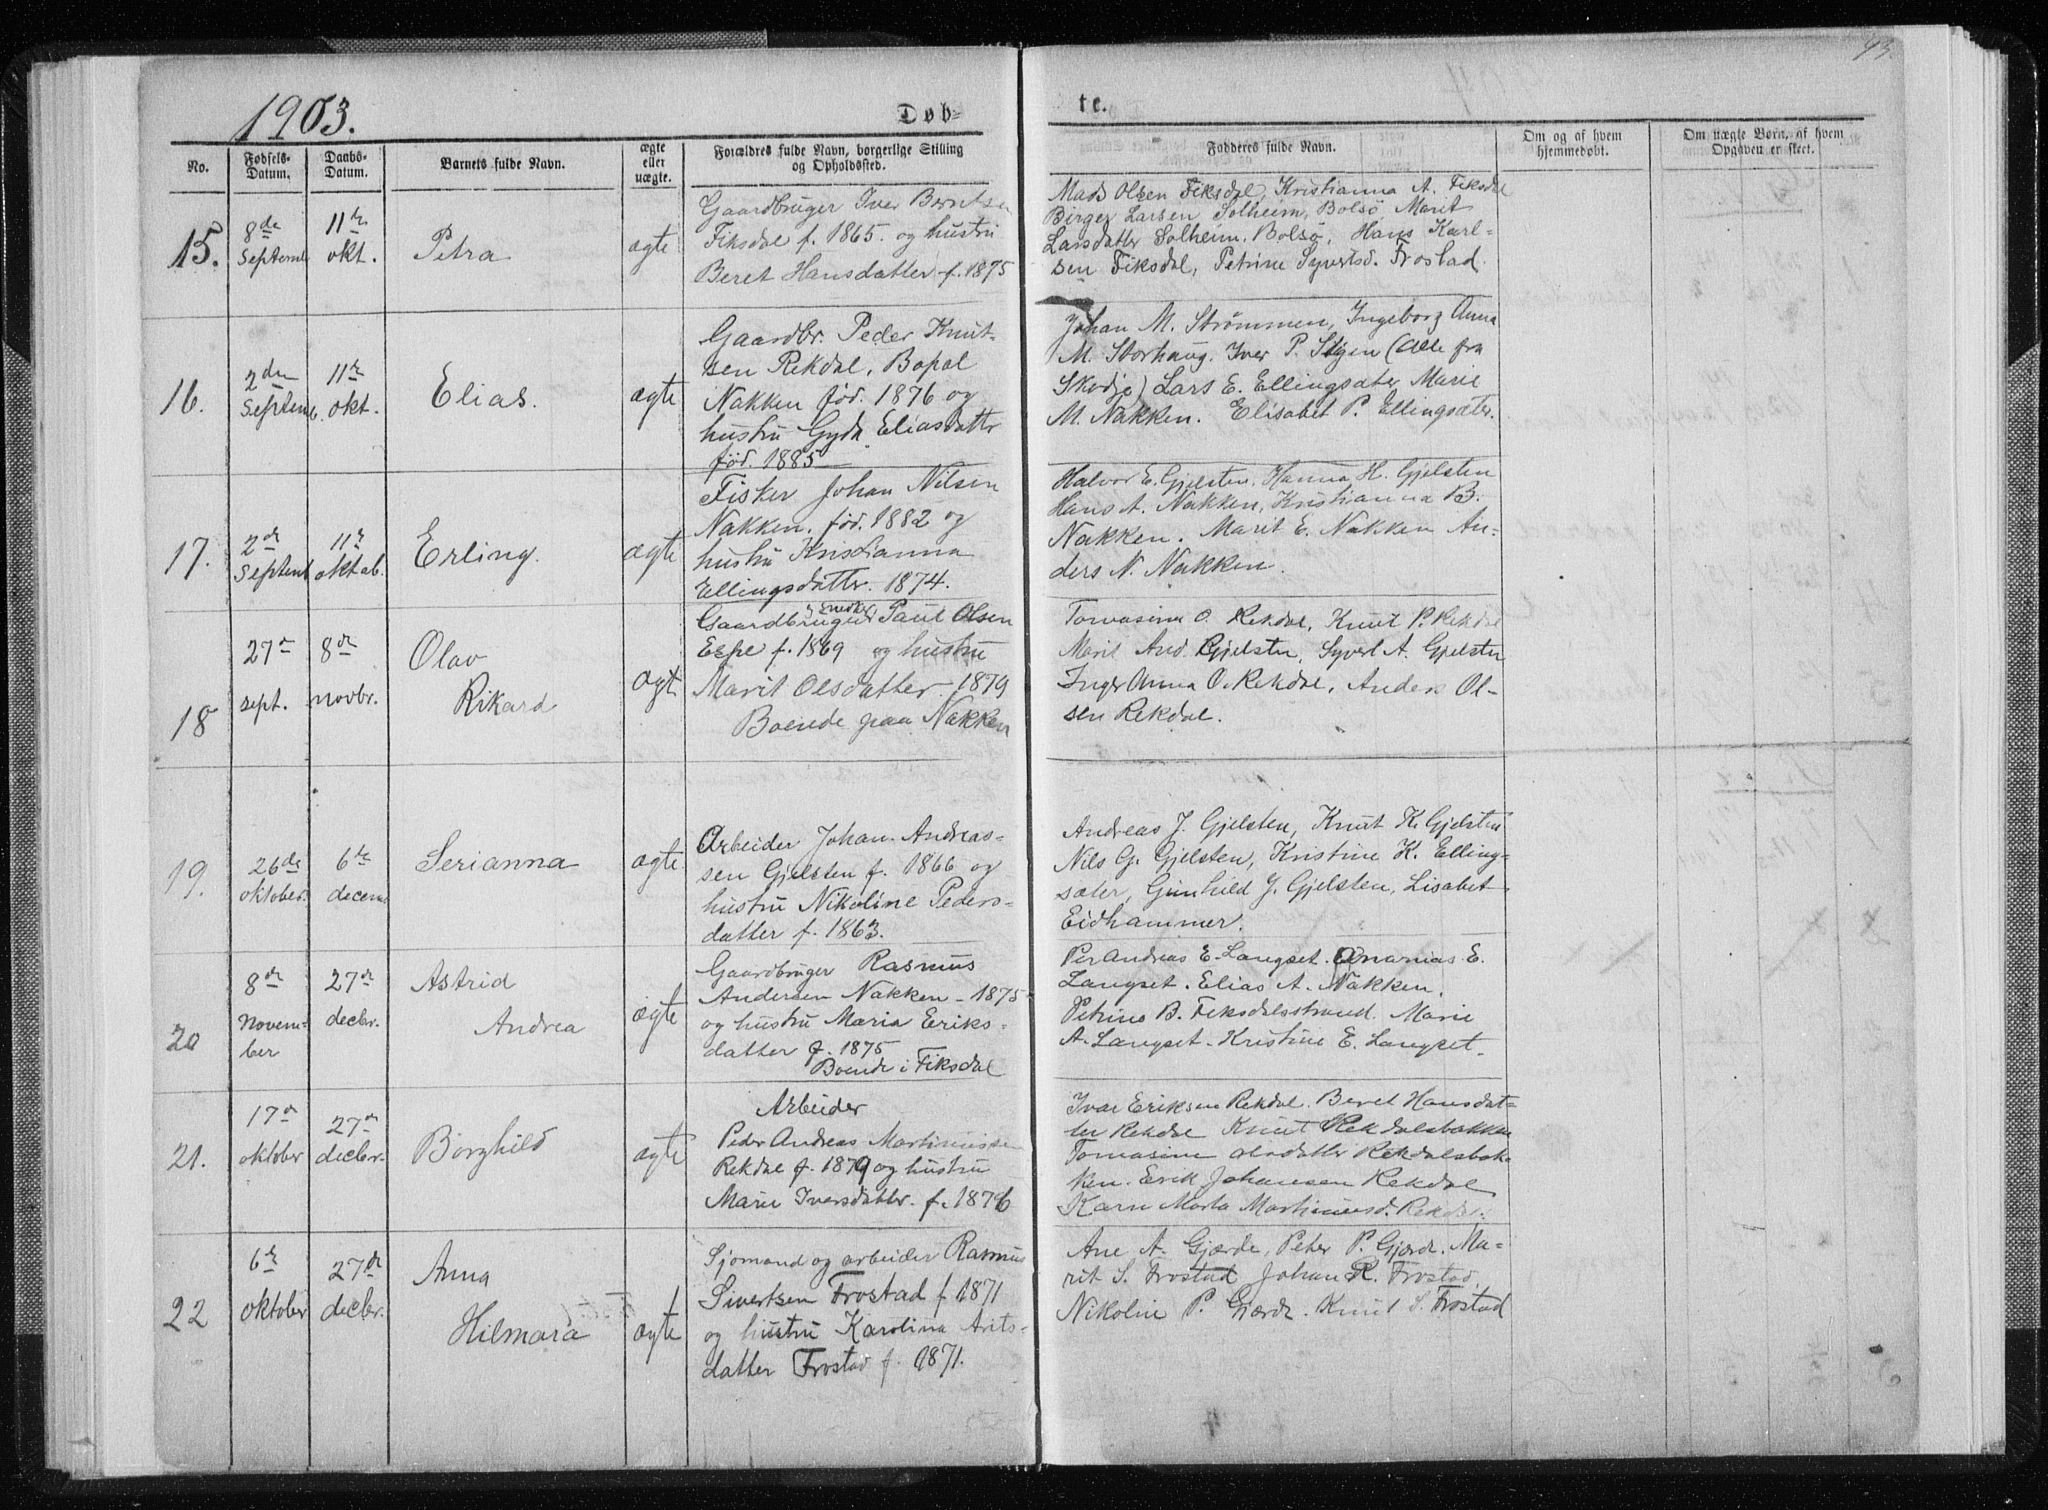 93.
1903.
Døb-
te.
No.
Fødsels-
Datum.
Daabs-
Datum.
Barnets fulde Navn.
ægte
eller
uægte.
Forældres fulde Navn, borgerlige Stilling
og Opholdssted.
Fadderes fulde Navn.
Om og af hvem
hjemmedøbt.
Om uægte Børn, af hvem
Opgaven er skeet.
15.
8de
Septemb
11te
okt.
Petra
ægte
Gaardbruger Iver Berntsen
Fiksdal f. 1865. og hustru
Beret Hansdatter f. 1875
Mads Olsen Fiksdal, Kristianna A. Fiksdal
Birger Larsen Solheim, Bolsø, Marit
Larsdatter Solheim, Bolsø, Hans Karl-
sen Fiksdal, Petrine Syvertsd. Frostad.
16.
2den
Septemb.
11te
okt.
Elias.
ægte
Gaardbr. Peder Knut-
sen Rekdal, Bopal
Nakken fød. 1876 og
hustru Gyda Eliasdattr
fød. 1885
Johan M. Strømmen, Ingeborg Anna
M. Storhaug. Iver P. Stgen (alle fra
Skodje) Lars E. Ellingsæter Marie
M. Nakken. Elisabet P. Ellingsæter.
17.
2de
Septemb
11te
oktob.
Erling.
ægte
Fisker Johan Nilsen
Nakken. fød. 1882 og
hustru Kristianna
Ellingsdattr. 1874.
Halvor E. Gjelsten. Hanna H. Gjelsten
Hans A. Nakken, Kristianna B.
Nakken. Marit E. Nakken An-
ders N. Nakken.
18
27de
sept.
8de
novbr.
Olav
Rikard
ægte
Gaardbruger Paul Olsen
Espe f. 1869 og hustru
Marit Olsdatter 1879
Boende paa Nakken
Tomasine O. Rekdal, Knut P. Rekdal
Marit And. Gjelsten, Syvert A. Gjelsten
Inger Anna O. Rekdal, Anders Ol-
sen Rekdal.
19.
26de
oktober.
6te
decem.
Serianna
ægte
Arbeider Johan Andreas-
sen Gjelsten f. 1866 og
hustru Nikoline Peders-
datter f. 1863.
Andreas J. Gjelsten, Knut K. Gjelsten
Nils G. Gjelsten, Kristine K. Elling-
sæter, Gunhild J. Gjelsten, Lisabet
Eidhammer.
20
8de
Novem-
ber
27de
decbr.
Astrid
Andrea
ægte
Gaardbruger Rasmus
Andersen Nakken - 1875
og hustru Maria Eriks-
datter f. 1875
Boende i Fiksdal
Per Andreas E. Langset. Ananias E.
Langset. Elias A. Nakken.
Petrine B. Fiksdalsstrand. Marie
A. Langset. Kristine E. Langset.
21.
17de
oktober
27de
decbr.
Borghild
ægte
Arbeider
Peder Andreas Martinussen
Rekdal f. 1879 og hustru
Marie Iversdattr. f. 1876
Ivar Eriksen Rekdal. Beret Hansdat-
ter Rekdal Knut Rekdalsbakken
Tomasine Olsdatter Rekdalsbak-
ken. Erik Johansen Rekdal
Karn Marta Martinusd. Rekdal.
22
6te
oktober
27de
decbr.
Anna
Hilmara
ægte
Sjømand og arbeider Rasmus
Sivertsen Frostad f 1871
og hustru Karolina Arits-
datter Frostad f. 1871.
Ane A. Gjærde, Peter P. Gjærde. Ma-
rit S. Frostad Johan R. Frostad.
Nikoline P. Gjærde. Knut S. Frostad